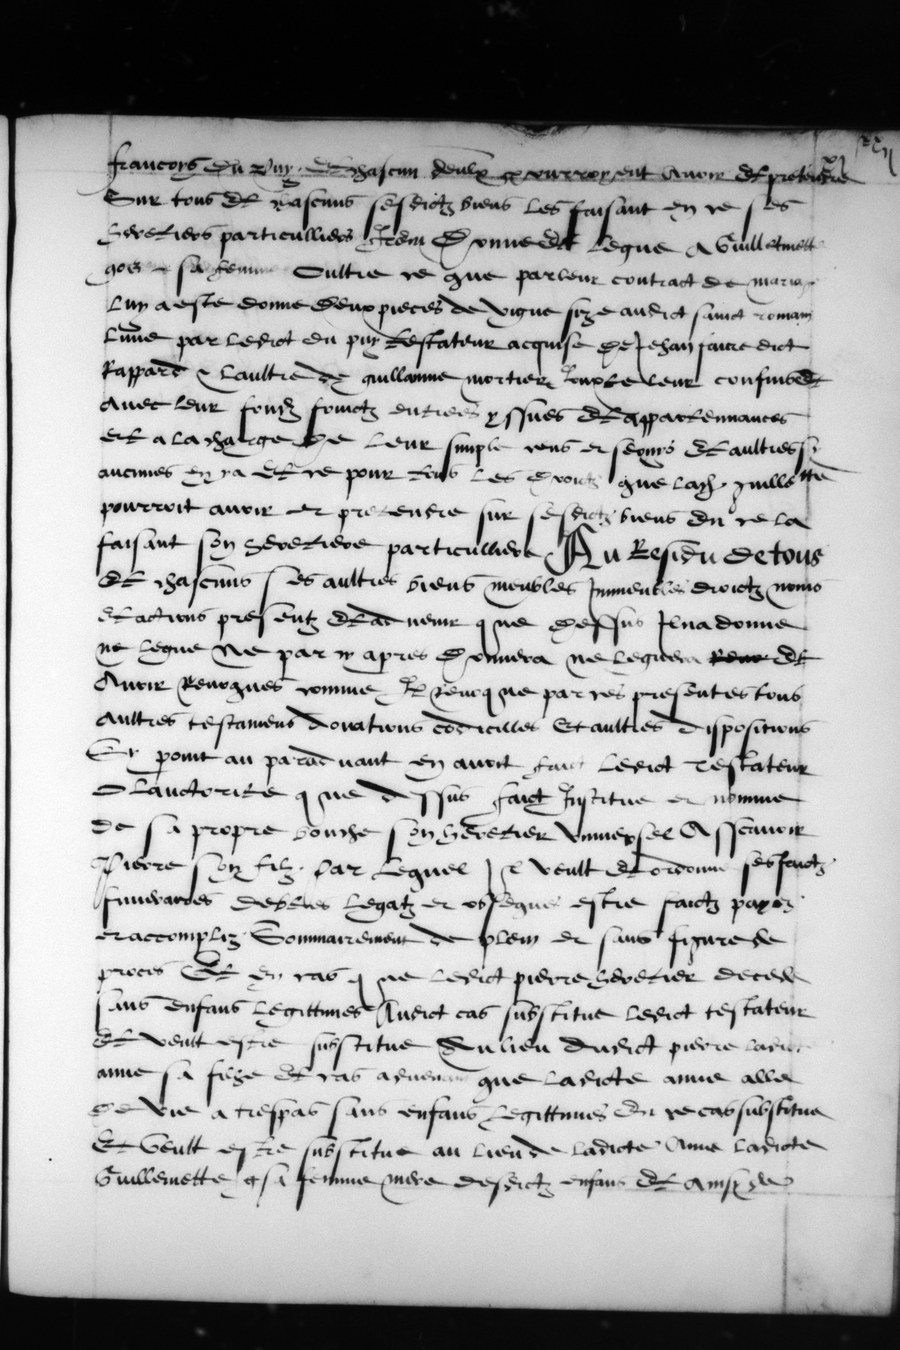 francoys du puy et chascun deulx pourroyent avoir et pretendre
Sur tous et chascuns sesdictz biens les faisant en ce ses
heretiers particulliers Item donne et legue a Guillemette
sa femme Oultre ce que par leur contract de mariage
luy a este donne deux pieces de vigne size audict sainct romain
lune par ledict du puy testateur acquise de Jehan faure dict
Rappard & laultre de guillaume mortier Jouxte leur confins et
avec leur fondz fruictz entrees yssues et appartenances
et a la charge de leur simple cens et servis et aultres sy
aucunes en y a et ce pour tous les droictz que lad. guillemette
pourroit avoir et pretendre sur sesdictz biens en ce la
faisant son heretiere particulliere Au Residu de tous
et chascuns ses aultres biens meubles Immeubles droictz noms
et actions presentz et advenir que dessus Il na donne
ne legue Ne par cy apres donnera ne leguera et
Avoir Revoques comme Il revoque par ces presentes tous
Aultres testamens donations codicilles Et aultres dispositions
Sy point au paradvant en avoit faict ledict testateur
O lauctorite que dessus faict Institue et nomme
de sa propre bouche son heretier universel Assavoir
Pierre son filz Par lequel Il veult et ordonne ses faictz
funerares debtes legatz et obseques estre faictz payez
et accompliz Sommairement de plein et sans figure de
proces Et en cas que ledict pierre heretier decede
sans enfans legittimes Audict cas substitue ledict testateur
et veult estre substitue Au lieu dudict pierre ladicte
anne sa fille et cas advenant que ladicte anne alle
de vie a trespas sans enfans legittimes En ce cas substitue
Et Veult estre substitue au lieu de ladicte Anne ladicte
Guillemette sa femme mere desdictz enfans et ainsy de